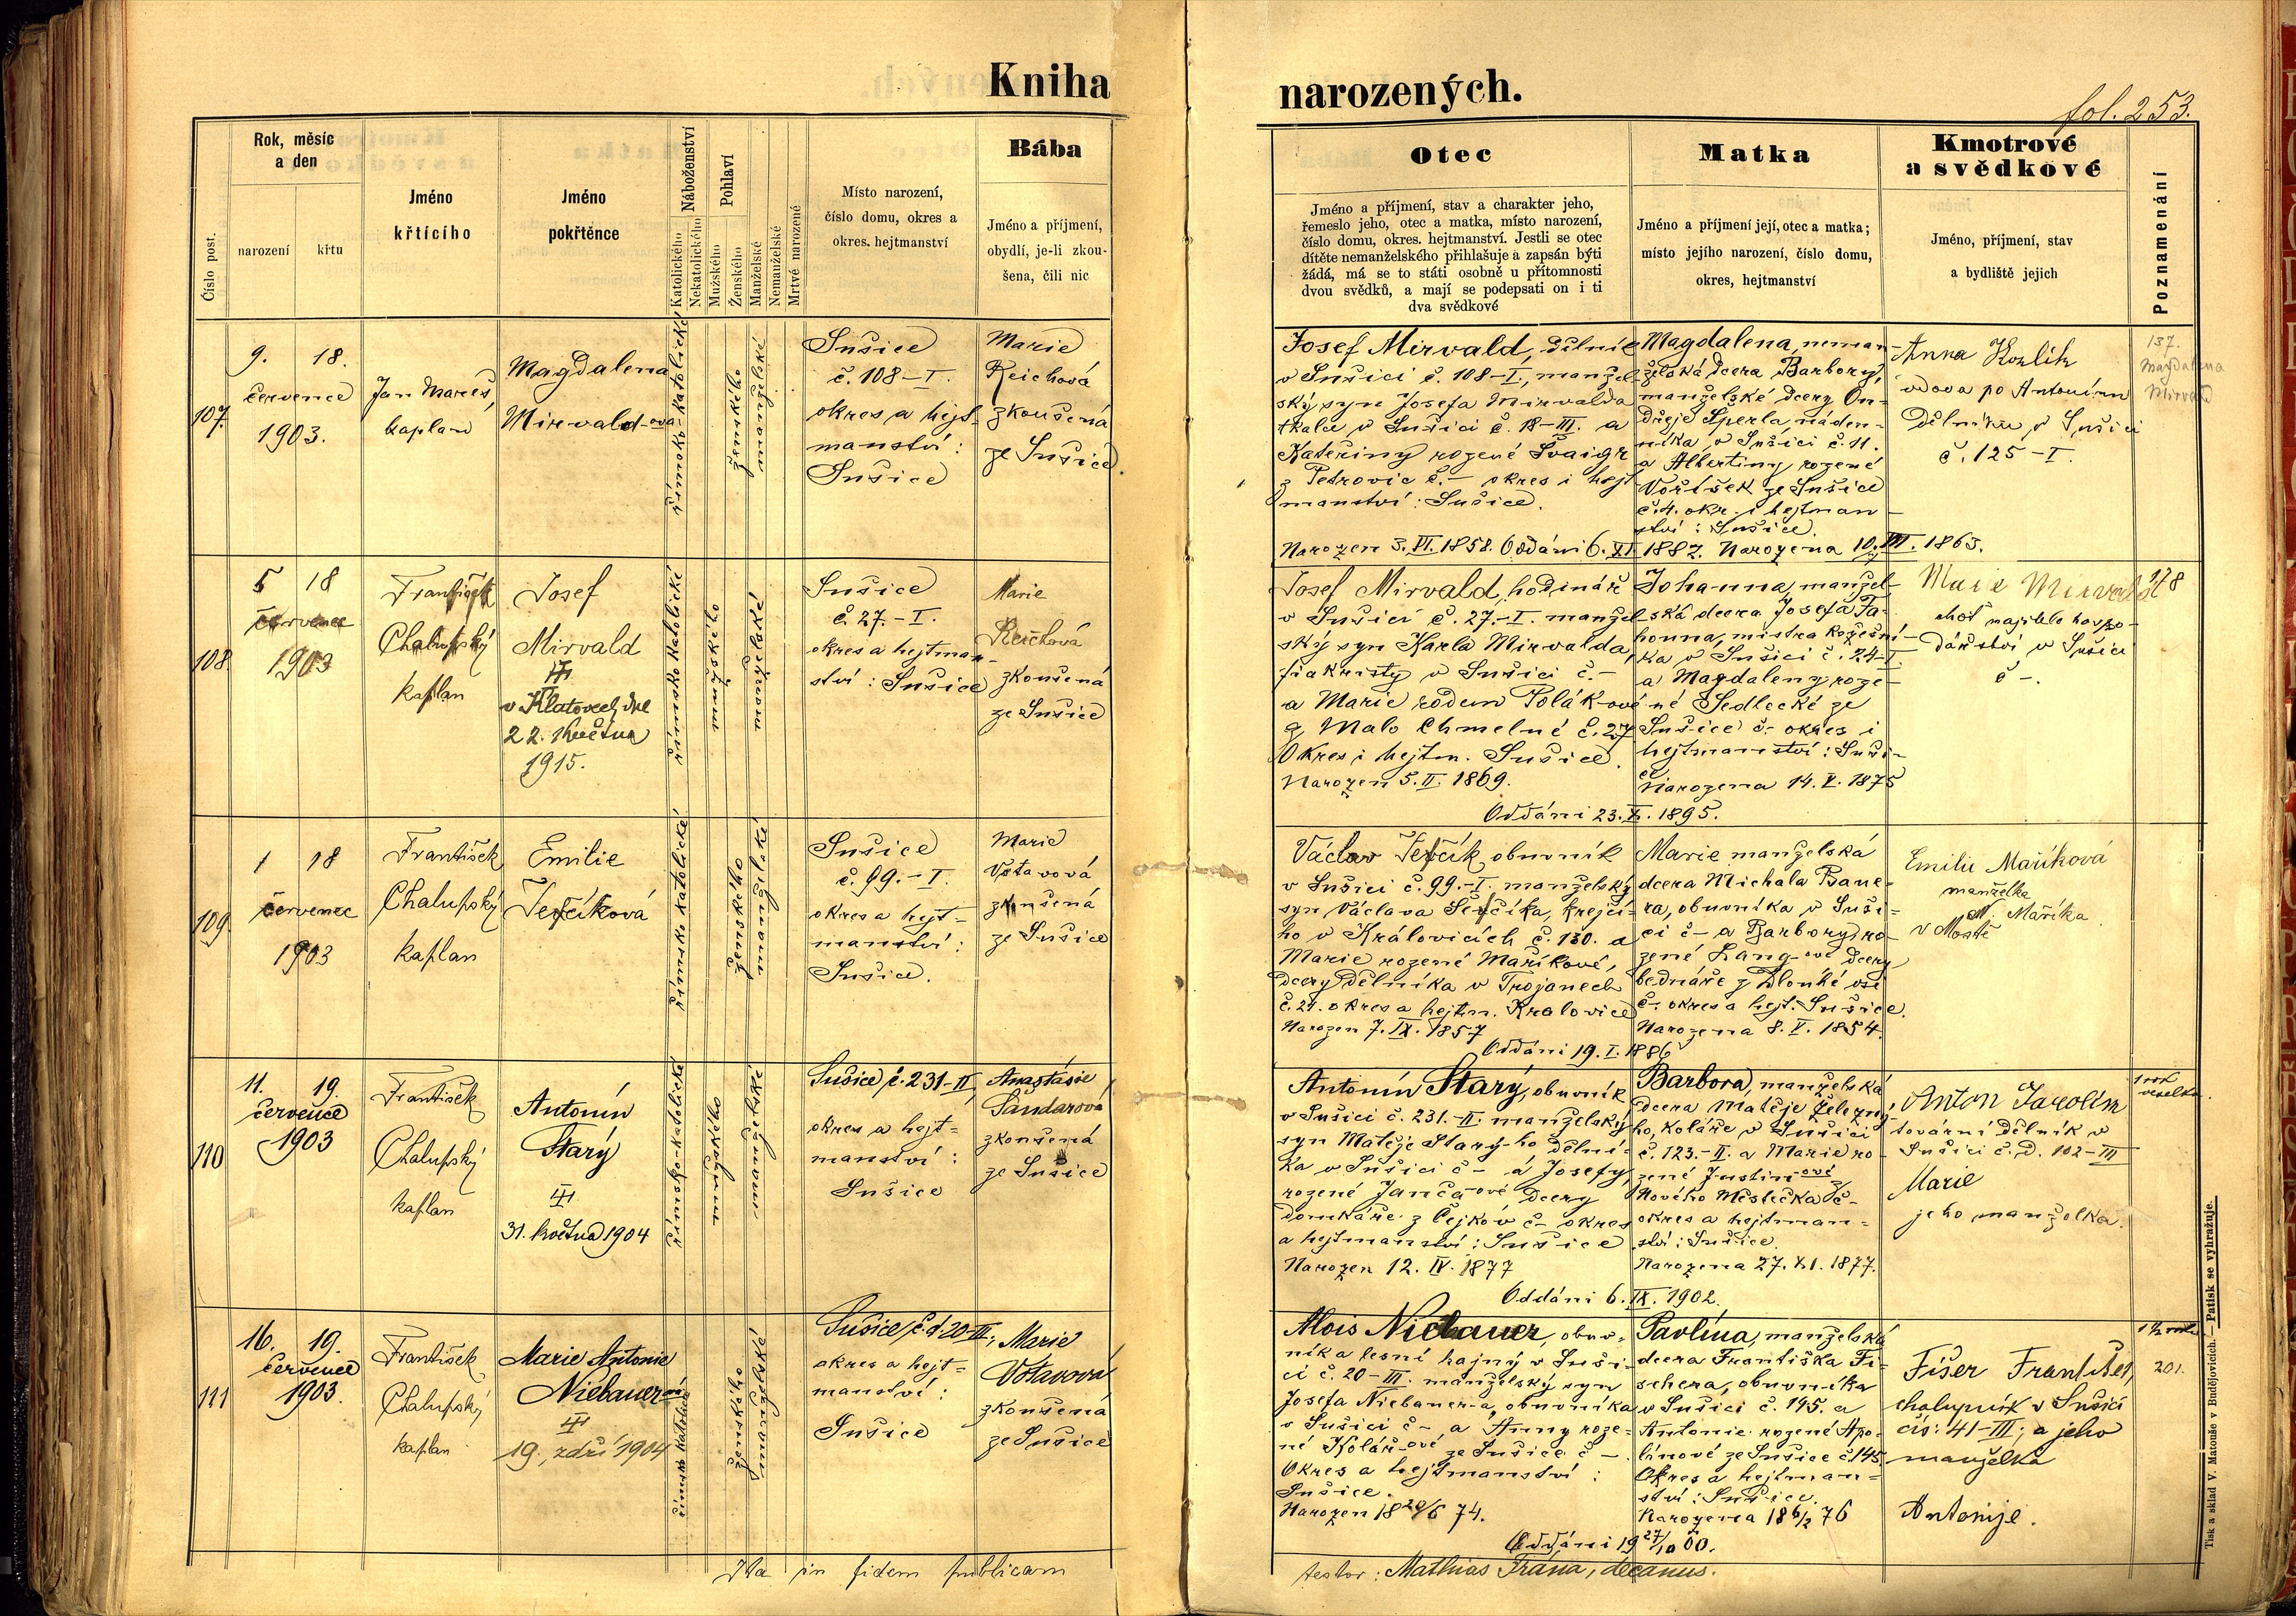 Kniha
narozených.
fol. 253.
Číslo post.
Rok, měsíc
a den
narození
křtu
Jméno
křtícího
Jméno
pokřtěnce
Náboženství
Katolického
Nekatolického
Pohlaví
Mužského
Ženského
Manželské
Nemanželské
Mrtvé narozené
Místo narození,
číslo domu, okres a
okres. hejtmanství
Bába
Jméno a příjmení,
obydlí, je-li zkou-
šena, čili nic
Otec
Jméno a příjmení, stav a charakter jeho,
řemeslo jeho, otec a matka, místo narození,
číslo domu, okres. hejtmanství. Jestli se otec
dítěte nemanželského přihlašuje a zapsán býti
žádá, má se to státi osobně u přítomnosti
dvou svědků, a mají se podepsati on i ti
dva svědkové
Matka
Jméno a příjmení její, otec a matka;
místo jejího narození, číslo domu,
okres, hejtmanství
Kmotrové
a svědkové
Jméno, příjmení, stav
a bydliště jejich
Poznamenání
107.
9. 18.
července
1903.
Jan Mareš,
kaplan
Magdalena
Mirvald-ova
římsko-katolické
ženského
manželské
Sušice
č. 108–I.
okres a hejt-
manství:
Sušice
Marie
Reichová
zkoušená
ze Sušice.
Josef Mirvald, dělník
v Sušici č. 108–I., manžel-
ský syn Josefa Mirvalda
tkalce v Sušici č. 18–III. a
Kateřiny rozené Švaigr
z Petrovic č. – okres i hejt
manství: Sušice.
Narozen 3. VI. 1858. Oddáni 6. XI. 1887. Narozena 10. III. 1863.
Magdalena, neman-
želská dcera Barbory,
manželské dcery On-
dřeje Šperla, náden-
níka v Sušici č. 11.
a Albertiny rozené
Voříšek ze Sušice
č. 4. okr. i hejtman
ství: Sušice.
Anna Kozlík
vdova po Antonínu
dělníku v Sušici
č. 125–I.
137.
Magdalena
Mirvald
108.
5 18
července
1903
František
Chalupský
kaplan
Josef
Mirvald
v Klatovech dne
22. května
1915.
římsko katolické
mužského
manželské
Sušice
č. 27.–I.
okres a hejtman-
ství: Sušice
Marie
Reichová
zkoušená
ze Sušice
Josef Mirvald, hodinář
v Sušici č. 27.–I. manžel-
ský syn Karla Mirvalda,
fiakristy v Sušici č. –
a Marie rodem Polák-ové
z Malo Chmelné č. 27
Okres i hejtm. Sušice.
Narozen 5. II. 1869.
Johanna, manžel-
ská dcera Josefa Ta-
honna, mistra kožešní-
ka v Sušici č. 24–I.
a Magdaleny roze-
né Sedlecké ze
Sušice č– okres i
hejtmanství: Suši-
ce
Narozena 14. V. 1875
Oddáni 23. X. 1895.
Marie Mirvald
choť najitele hospo-
dářství v Sušici
č –.
109.
1 18
červenec
1903
František
Chalupský
kaplan
Emilie
Ševčíková
římsko katolické
ženského
manželské
Sušice
č. 99.–I.
okres a hejt-
manství:
Sušice.
Marie
Votavová
zkoušená
ze Sušice
Václav Ševčík obuvník
v Sušici č. 99.–I. manželský
syn Václava Ševčíka, krejčí-
ho v Královicích č. 130. a
Marie rozené Maříkové,
dcery dělníka v Trojanech
č. 21. okres a hejtm. Kralovice
Narozen 7. IX. 1857
Marie manželská
dcera Michala Baue-
ra, obuvníka v Suši-
ci č– a Barbory, ro-
zené Lang-ové dcery
bednáře z Dlouhé vsi
č– okres a hejt. Sušice.
Narozena 8. V. 1854.
Oddáni 19. I. 1886
Emilie Maříková
manželka
Maříka
v Mostě
110
11. 19.
července
1903
František
Chalupský
kaplan
Antonín
Starý
31. května 1904
římsko-katolické
mužského
manželské
Sušice, č. 231–II,
okres a hejt=
manství:
Sušice
Anastásie
Šandarová
zkoušená
ze Sušice
Antonín Starý, obuvník
v Sušici č. 231.–II. manželský
syn Matěje Starý-ho dělní-
ka v Sušici č – a Josefy,
rozené Janča-ové dcery
domkáře z Čejkov č– okres
a hejtmanství: Sušice
Narozen 12. IV. 1877
Barbora manželská
dcera Matěje Železný-
ho, koláře v Sušici
č. 123.–II. a Marie ro-
zené Justin-ové z
Nového Městečka č–
okres a hejtman=
ství: Sušice.
Narozena 27. XI. 1877.
Oddáni 6. IX. 1902.
Anton Jarolím
tovární dělník v
Sušici č. D. 102–III
Marie
jeho manželka.
111
16. 19.
července
1903.
František
Chalupský
kaplan
Marie Antonie
Niebauer-ová
19. září 1904
římsko katolické
ženského
manželské
Sušice, č. d 20–III;
okres a hejt=
manství:
Sušice
Marie
Votavová
zkoušená
ze Sušice
Alois Niebauer, obuv-
níka lesní hajný v Suši-
ci č. 20–III. manželský syn
Josefa Niebauer-a, obuvníka
v Sušici č – a Anny roze-
né Kolář-ové ze Sušice č –.
Okres a hejtmanství:
Sušice.
Narozen 18 20/6 74.
Pavlína, manželská
dcera Františka Fi-
schera, obuvníka
v Sušici č. 195. a
Antonie rozené Apo-
línové ze Sušice č 145.
Okres a hejtman=
ství: Sušice.
Narozena 18 6/2 76
Oddáni 19 27/10 00.
Fišer František,
chalupník v Sušici
čís: 41–III; a jeho
manželka
Antonije.
201.
Ita in fidem publicam
testor: Mathias Frána, decanus.
Tisk a sklad V. Matouše v Budějovicích. — Patisk se vyhražuje.